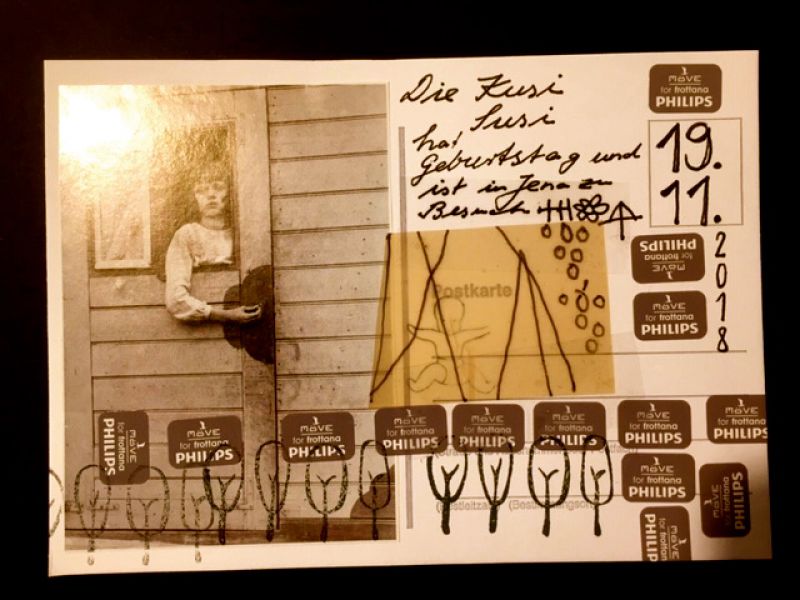 Die Kusi
Susi
hat
Geburtstag und
ist in Jena zu
Besuch
19.
11.
2
0
1
8
1
MOVE
for frottana
PHILIPS
PHILIPS
for frottana
MOVE
1
1
MOVE
for frottana
PHILIPS
Postkarte
1
MOVE
for frottana
PHILIPS
1
MOVE
for frottana
PHILIPS
1
MOVE
for frottana
PHILIPS
1
MOVE
for frottana
PHILIPS
1
MOVE
for frottana
PHILIPS
1
MOVE
for frottana
PHILIPS
1
MOVE
for frottana
PHILIPS
1
MOVE
for frottana
PHILIPS
1
MOVE
for frottana
PHILIPS
1
MOVE
for frottana
PHILIPS
1
MOVE
for frottana
PHILIP
(Postleitzahl) (Bestimmungsort)